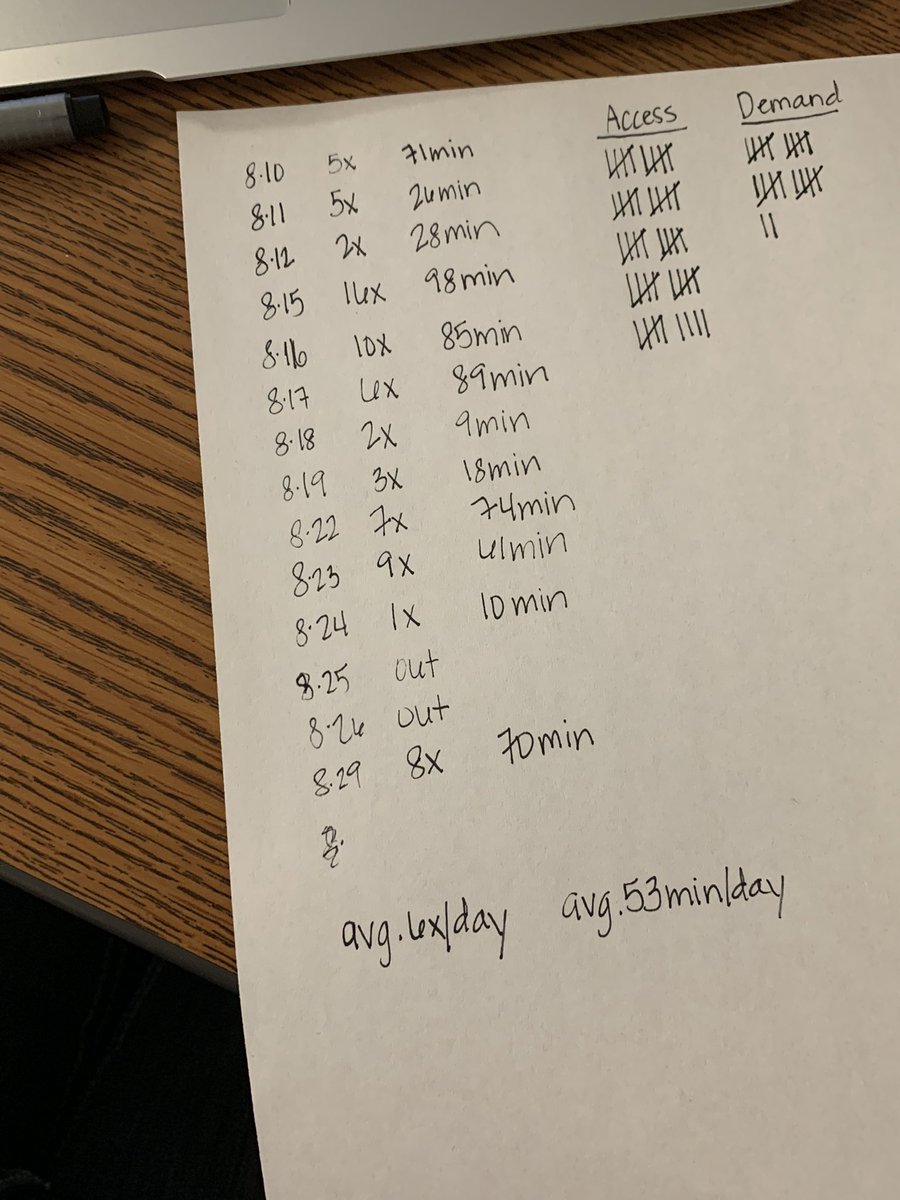 Access Demand
8.10 5x 71min
8.11 5x 26min
8.12 2x 28min
8.15 16x 98min
8.16 10x 85min
8.17 6x 89min
8.18 2x 9min
8.19 3x 18min
8.22 7x 74min
8.23 9x 61min
8.24 1x 10min
8.25 out
8.26 out
8.29 8x 70min
avg. 6x/day avg. 53min/day